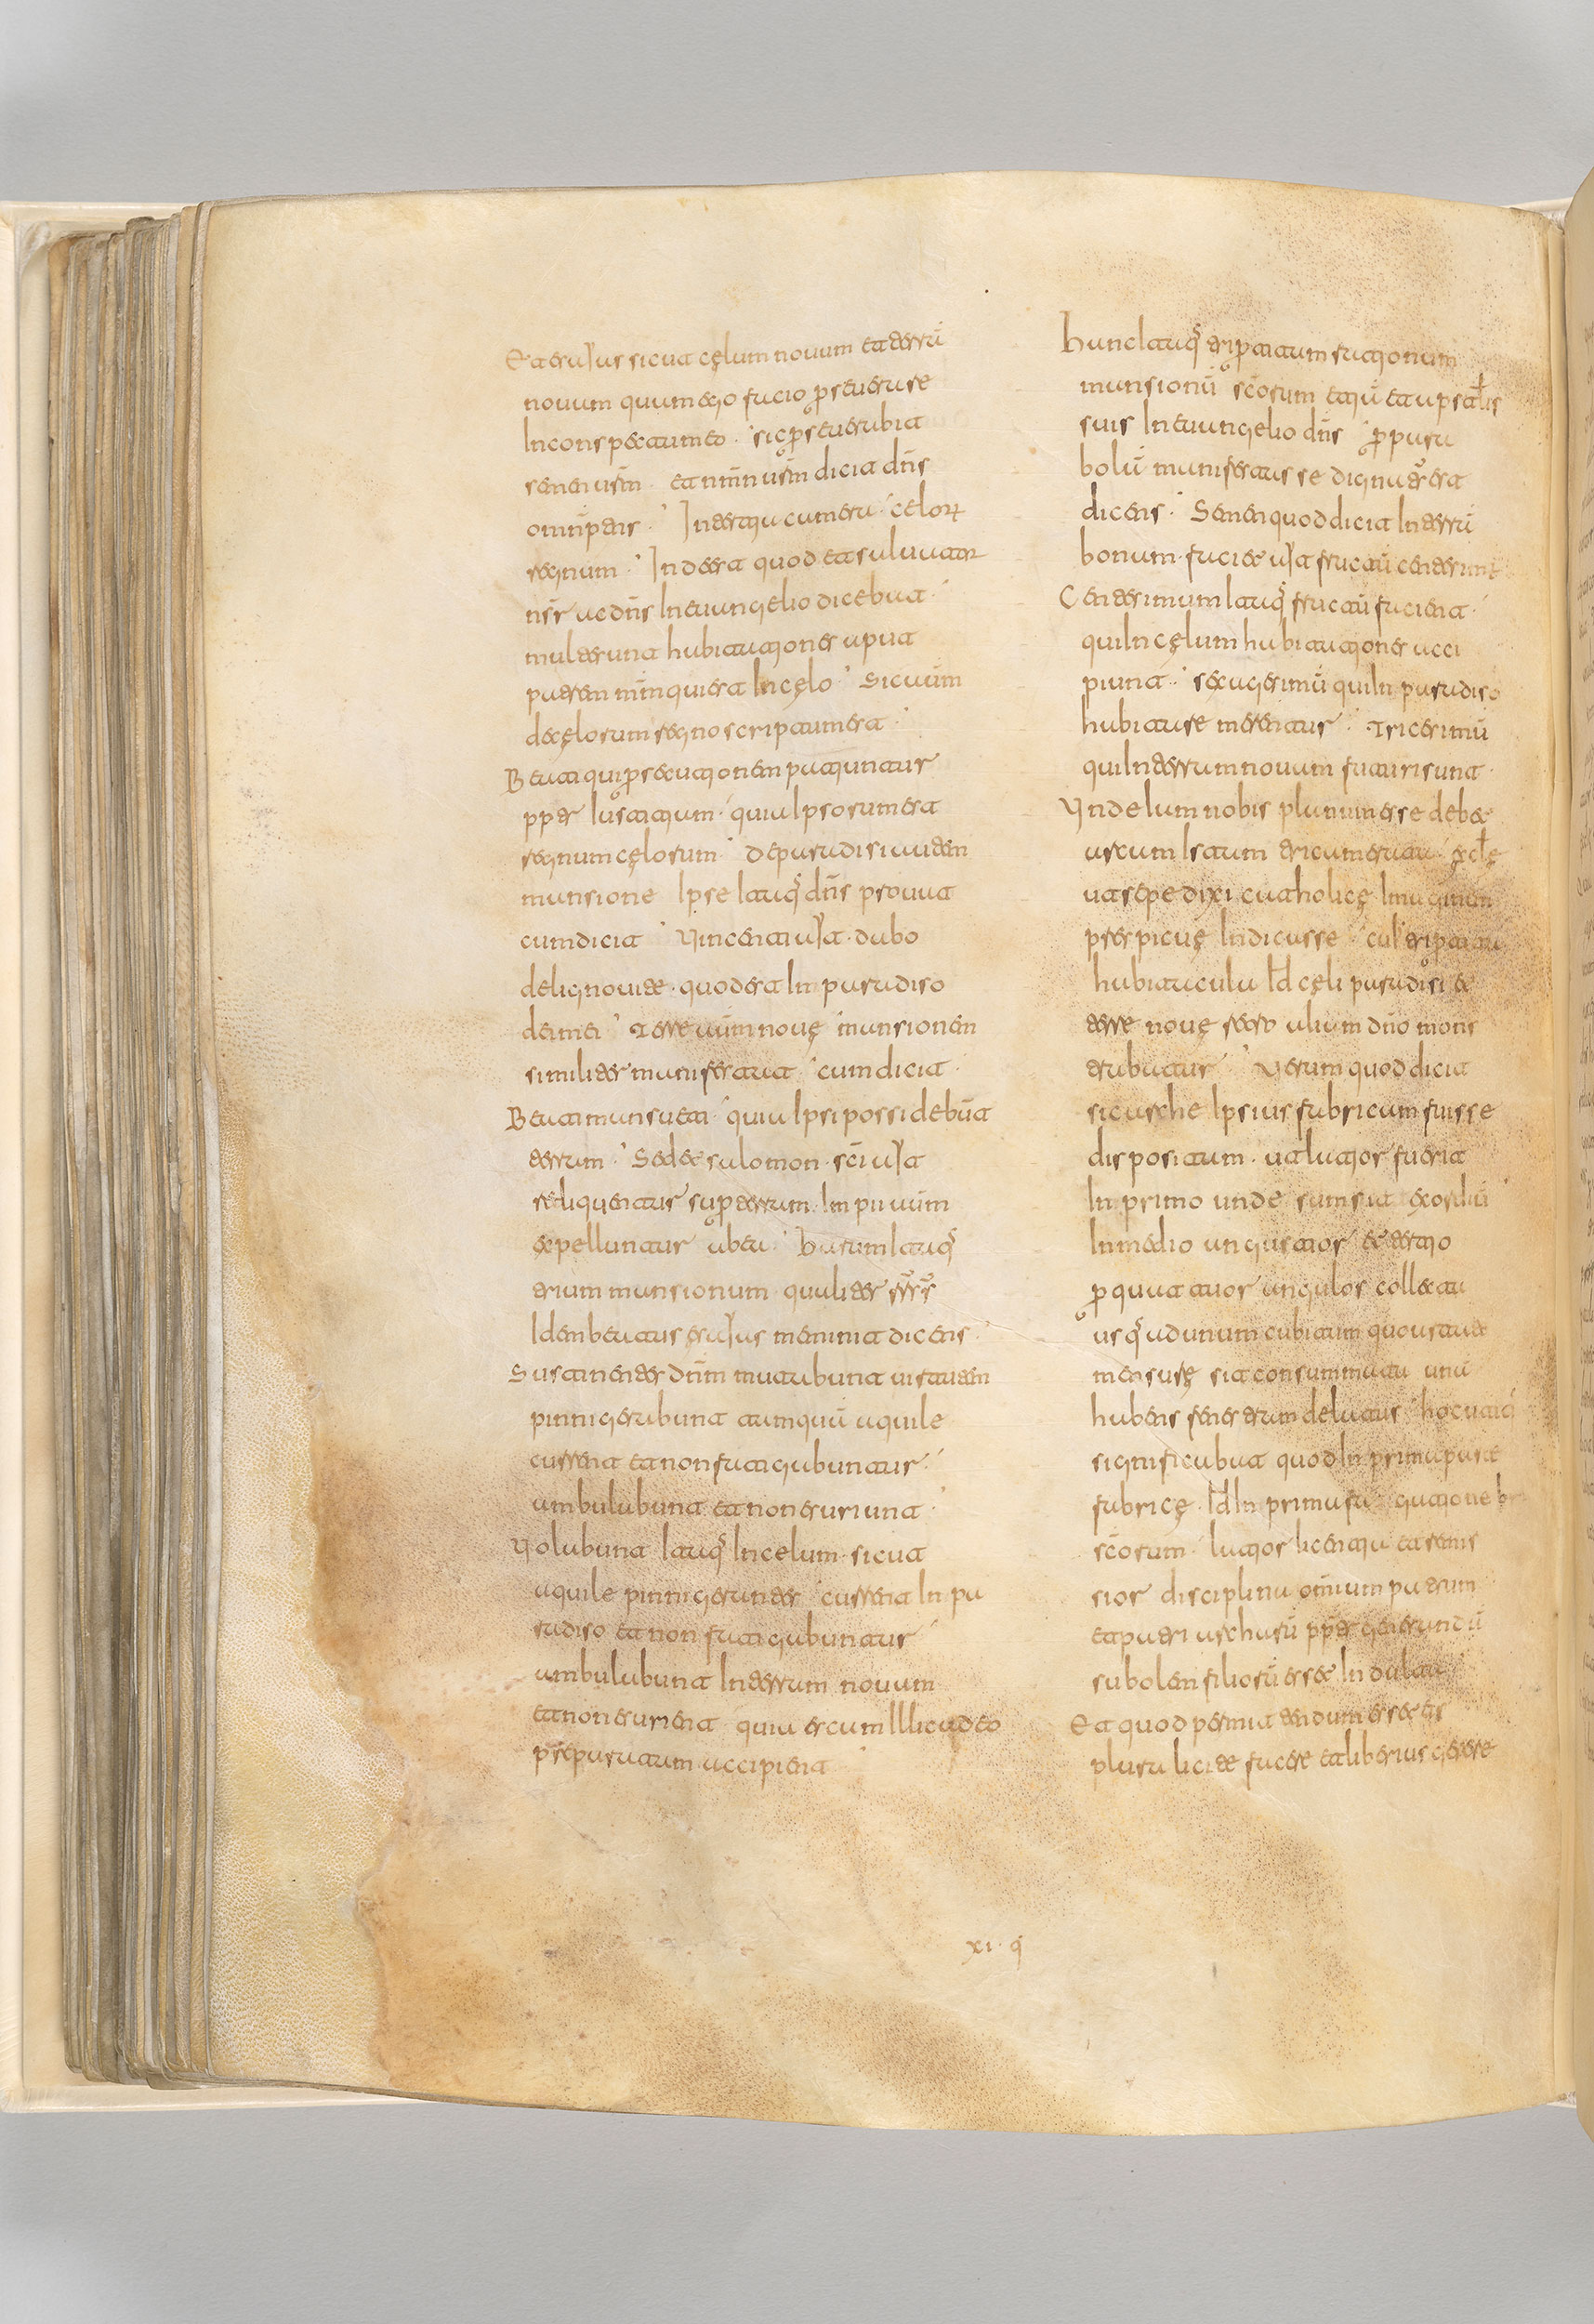 Et esaias sicut cęlum nouum et terrā
nouam quam ego facio perseuerare
In conspectu meo · sic perseuerabit
semen usm̄ · et nmn̄ usm̄ dicit dn̄s
omnīptns · In tertia camera celorꝝ
regnum · Inde est quod et saluator
nsr̄ ut dn̄s In euangelio dicebat
multe sunt habitationes aput
patrem mm̄ qui est In cęlo · Sicūm
de cęlorum regno scriptum est ·
Beati qui persecutionem patiuntur
pp̄ter Iustitiam · quia Ipsorum est
regnum cęlorum · de paradisi autem
mansione Ipse Itaq dn̄s probat
cum dicit Vincenti ait · dabo
de ligno uite · quod est In paradiso
dei mei · Terre aūm nouę mansionem
similiter manifestat · cum dicit ·
Beati mansueti · quia Ipsi possidebūt
terram · Sed et salomon · sc̄i ait
relinquentur super terram · Impii aūm
expelluntur ab ea · harum Itaq
trium mansionum qualiter sr̄sr̄
Idem beatus esaias meminit dicens ·
Sustinentes dnm̄ mutabunt uirtutem
pinnigerabunt tamquā aquile
current et non fatigabuntur ·
ambulabunt et non esuriunt ·
Volabunt Itaq In celum · sicut
aquile pinnigerantes current In pa
radiso et non fatigabuntur
ambulabunt In terram nouam
et non esurient quia escam Illic a deo
preparatam accipient
hunc Itaq tripertitam stationum
mansionū scōrum etiā et apsatlis
suis In euangelio dn̄s per para
bolā manifestasse dignatus est
dicens · Semen quod dicit In terrā
bonam · faciet ait fructū centesimū
Centesimum Itaq fructū facient ·
qui In cęlum habitationes acci
piunt · sexagesimū qui In paradiso
habitare merentur · Tricesimū
qui In terram nouam futuri sunt ·
Unde Iam nobis planum esse debet
arcam Istam tricamerata eclę
ut sepe dixi catholicę Imaginem
perspicue Indicasse cui tripertita
habitacula Id cęli paradisi et
terre nouę sacro alium dn̄o mons
trabatur · Verum quod dicit
sicut arche Ipsius fabricam fuisse
dispositam · ut latior fuerit
In primo unde sumsit exordiū
In medio angustior et tertio
per quattuor angulos collecta
usq ad unum cubitum quo usta de
mensurę sit consummata una
habens fenestram de latus hoc utiq
significabat quod In prima parte
fabricę · Id In prima fu gatione
scōrum · latior licentia et remis
sior disciplina omium patrum
et patriarcharū pp̄ter generandū
subolem filiorū esset Indulta
Et quod permittendum esset eis
plura licite facere et liberius gerere
xi · q